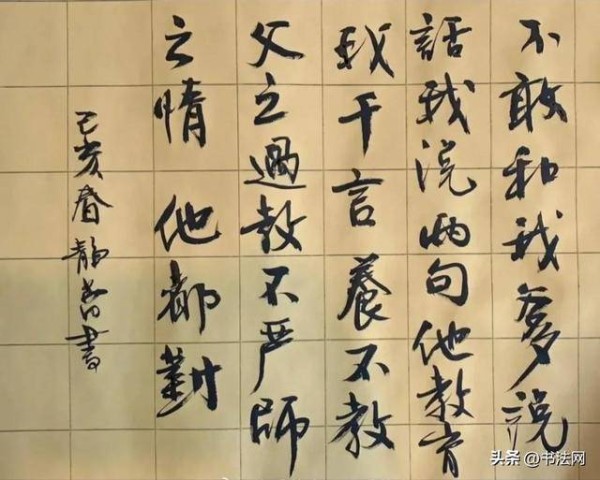 不敢和我爹说
話我说两句他教育
我千言養不教
父之過教不严師
之情 他都對
己亥春靜書
头条 @书法网